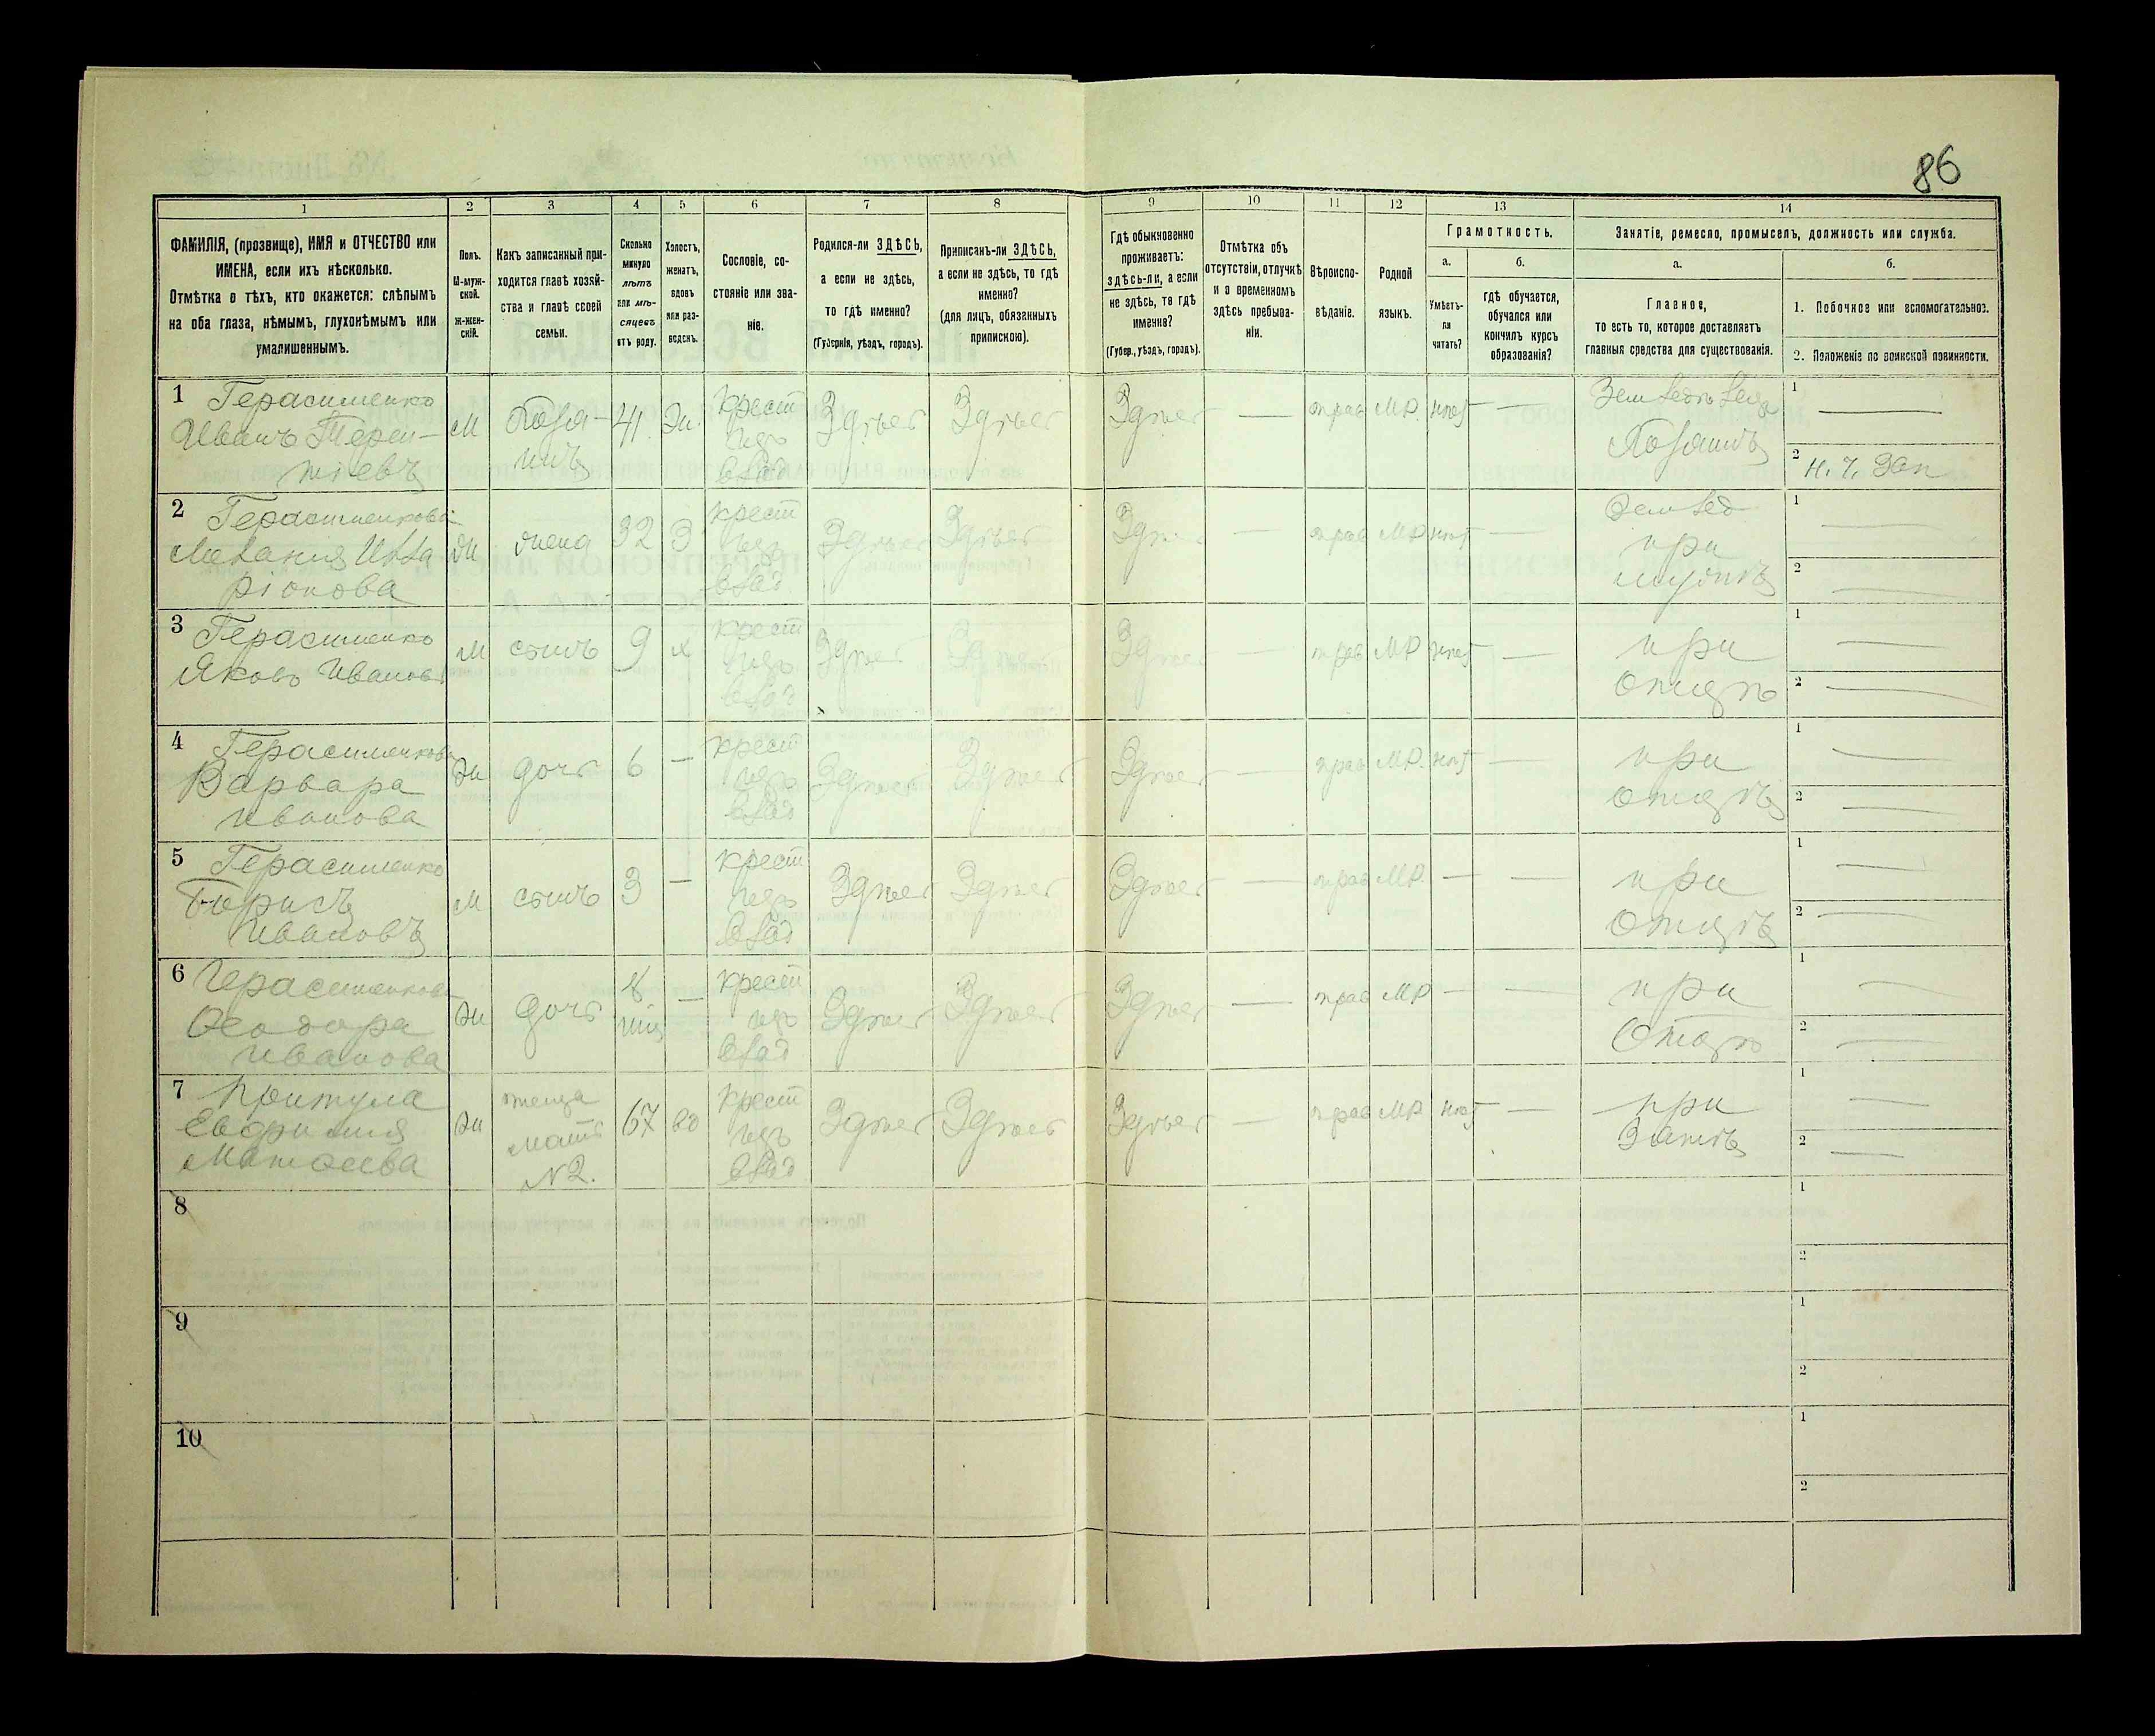 86
1
2
3
4
5
6
7
8
9
10
11
12
13
14
ФАМИЛІЯ, (прозвище), ИМЯ и ОТЧЕСТВО или
ИМЕНА, если ихъ нѣсколько.
Отмѣтка о тѣхъ, кто окажется: слѣпымъ
на оба глаза, нѣмымъ, глухонѣмымъ или
умалишеннымъ.
Полъ.
М-муж-
ской.
Ж-жен-
скій.
Какъ записанный при-
ходится главѣ хозяй-
ства и главѣ своей
семьи.
Сколько
минуло
лѣтъ
или мѣ-
сяцевъ
отъ роду.
Холостъ,
женатъ,
вдовъ
или раз-
веденъ.
Сословіе, со-
стояніе или зва-
ніе.
Родился-ли ЗДѢСЬ,
а если не здѣсь,
то гдѣ именно?
(Губернія, уѣздъ, городъ).
Приписанъ-ли ЗДѢСЬ,
а если не здѣсь, то гдѣ
именно?
(для лицъ, обязанныхъ
припискою).
Гдѣ обыкновенно
проживаетъ:
здѣсь-ли, а если
не здѣсь, то гдѣ
именно?
(Губер., уѣздъ, городъ).
Отмѣтка объ
отсутствіи, отлучкѣ
и о временномъ
здѣсь пребыва-
ніи.
Вѣроиспо-
вѣданіе.
Родной
языкъ.
Грамотность.
а.
Умѣетъ-
ли
читать?
б.
гдѣ обучается,
обучался или
кончилъ курсъ
образованія?
Занятіе, ремесло, промыселъ, должность или служба.
а.
Главное,
то есть то, которое доставляетъ
главныя средства для существованія.
б.
1. Побочное или вспомогательное.
2. Положеніе по воинской повинности.
1 Герасименко
Иванъ Терен-
тіевъ
М
Хозя-
инъ
41
Ж.
крест
изъ
влад
Здѣсь
Здѣсь
Здѣсь
—
прав
МР.
нѣт
—
Хозяинъ
1 —
2 Н. Ч. Зап
2 Герасименкова
Мелания Илла
ріонова
Ж
жена
32
З
крест
изъ
влад
Здѣсь
Здѣсь
—
прав
МР
нѣт
—
Земвед
при
мужѣ
1 —
2 —
3 Герасименко
Яковъ Ивановъ
М
сынъ
9
х
крест
изъ
влад
Здѣсь
Здѣсь
Здѣсь
—
прав
МР
нѣт
—
при
отцѣ
1 —
2 —
4 Герасименкова
Варвара
Иванова
Ж
дочь
6
—
крест
изъ
влад
Здѣсь
Здѣсь
Здѣсь
—
прав
МР.
нѣт
—
при
отцѣ
1 —
2 —
5 Герасименко
Борисъ
Ивановъ
М
сынъ
3
—
крест
изъ
влад
Здѣсь
Здѣсь
Здѣсь
—
прав
МР.
—
—
при
отцѣ
1 —
2 —
6 Герасименкова
Ѳеодора
Иванова
Ж
дочь
8
—
крест
изъ
влад
Здѣсь
Здѣсь
Здѣсь
—
прав
МР
—
—
при
Отцѣ
1 —
2 —
7 Притула
Евфимия
Матфеева
Ж
теща
мать
№2.
67
вд
крест
изъ
влад
Здѣсь
Здѣсь
Здѣсь
—
прав
МР
нѣт
—
при
Зятѣ
1 —
2 —
8
1
2
9
1
2
10
1
2